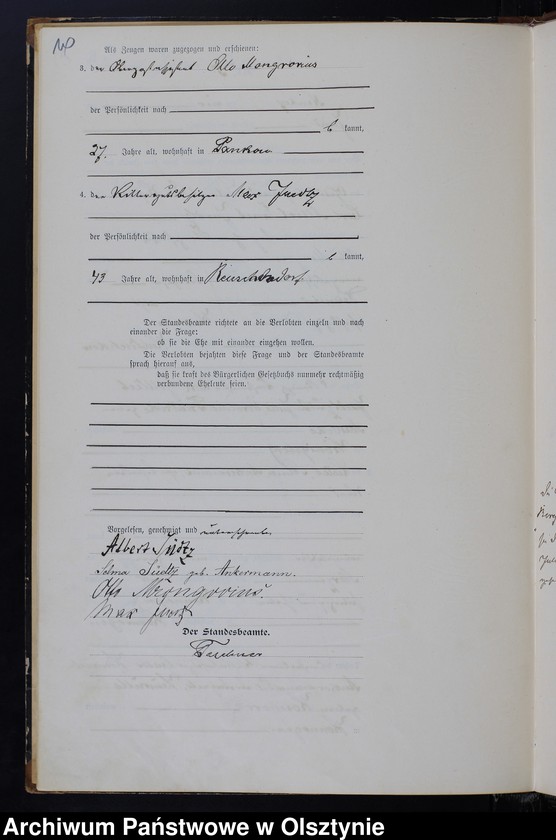 Als Zeugen waren zugezogen und erschienen:
3. der Otto Mongrovius
der Persönlichkeit nach
kannt,
27 Jahre alt, wohnhaft in Pankow
4. der Rittergutsbesitzer Max
der Persönlichkeit nach
kannt,
43 Jahre alt, wohnhaft in
Der Standesbeamte richtete an die Verlobten einzeln und nach
einander die Frage:
ob sie die Ehe mit einander eingehen wollen.
Die Verlobten bejahten diese Frage und der Standesbeamte
sprach hierauf aus,
daß sie kraft des Bürgerlichen Gesetzbuchs nunmehr rechtmäßig
verbundene Eheleute seien.
Vorgelesen, genehmigt und unterschrieben
Albert
Selma geb. Ankermann.
Otto Mongrovius.
Max
Der Standesbeamte.
Archiwum Państwowe w Olsztynie